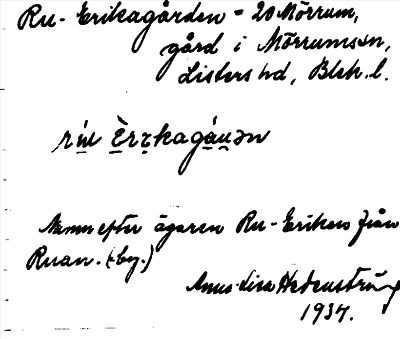 Ru-Erikagården = 20 Mörrum,
gård i Mörrums sn,
Listers hd, Blek. l.
Namn efter ägaren Ru-Eriken från
Ruan. (by.)
Anna-Lisa Hedenström
1934.